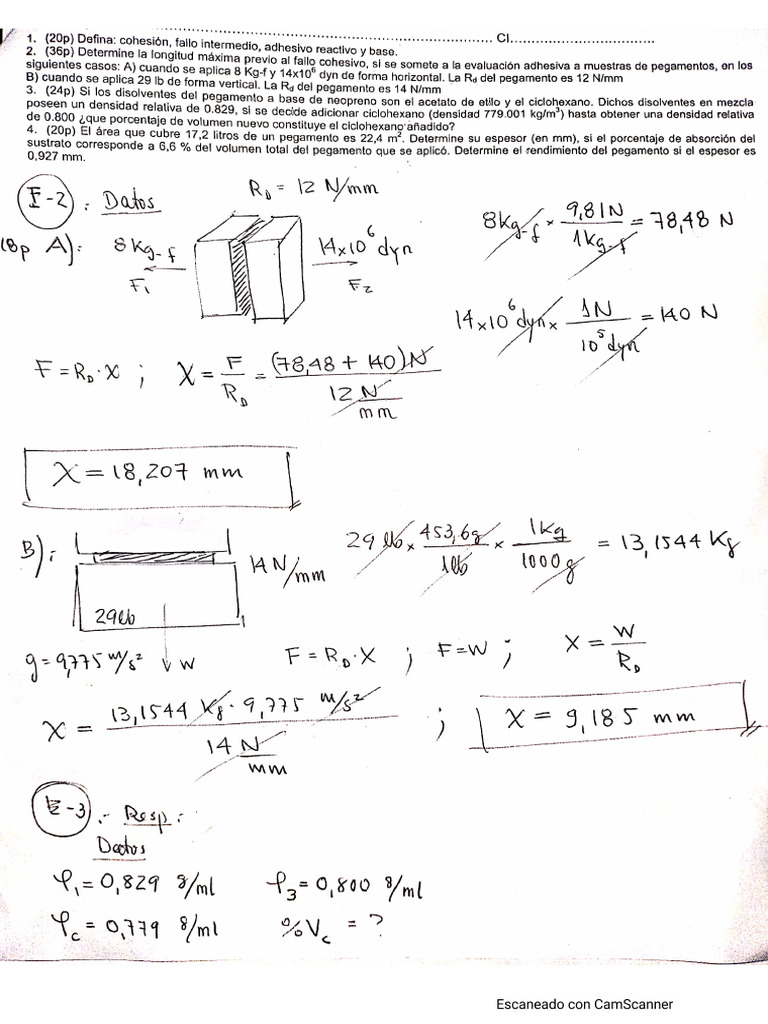 CI
1. (20p) Defina: cohesión, fallo intermedio, adhesivo reactivo y base.
2. (36p) Determine la longitud máxima previo al fallo cohesivo, si se somete a la evaluación adhesiva a muestras de pegamentos, en los
siguientes casos: A) cuando se aplica 8 Kg-f y 14x10⁶ dyn de forma horizontal. La Rd del pegamento es 12 N/mm
B) cuando se aplica 29 lb de forma vertical. La Rd del pegamento es 14 N/mm
3. (24p) Si los disolventes del pegamento a base de neopreno son el acetato de etilo y el ciclohexano. Dichos disolventes en mezcla
poseen un densidad relativa de 0.829, si se decide adicionar ciclohexano (densidad 779.001 kg/m³) hasta obtener una densidad relativa
de 0.800 ¿que porcentaje de volumen nuevo constituye el ciclohexano añadido?
4. (20p) El área que cubre 17,2 litros de un pegamento es 22,4 m². Determine su espesor (en mm), si el porcentaje de absorción del
sustrato corresponde a 6,6 % del volumen total del pegamento que se aplicó. Determine el rendimiento del pegamento si el espesor es
0,927 mm.
I-2 : Datos
R_D = 12 N/mm
18p A):
8 Kg-f
F₁
14x10⁶ dyn
F₂
8 Kg-f x 9,81N / 1Kg-f = 78,48 N
14x10⁶ dyn x 1N / 10⁵ dyn = 140 N
F = R_D · X ; X = F / R_D = (78,48 + 140) N / 12 N/mm
X = 18,207 mm
B):
14 N/mm
29 lb
29 lb x 453,6g / 1lb x 1Kg / 1000g = 13,1544 Kg
g = 9,775 m/s²
W
F = R_D · X ; F = W ; X = W / R_D
X = 13,1544 Kg · 9,775 m/s² / 14 N/mm ; X = 9,185 mm
-3 .- Resp :
Datos
φ₁ = 0,829 g/ml φ₃ = 0,800 g/ml
φc = 0,779 g/ml %Vc = ?
Escaneado con CamScanner